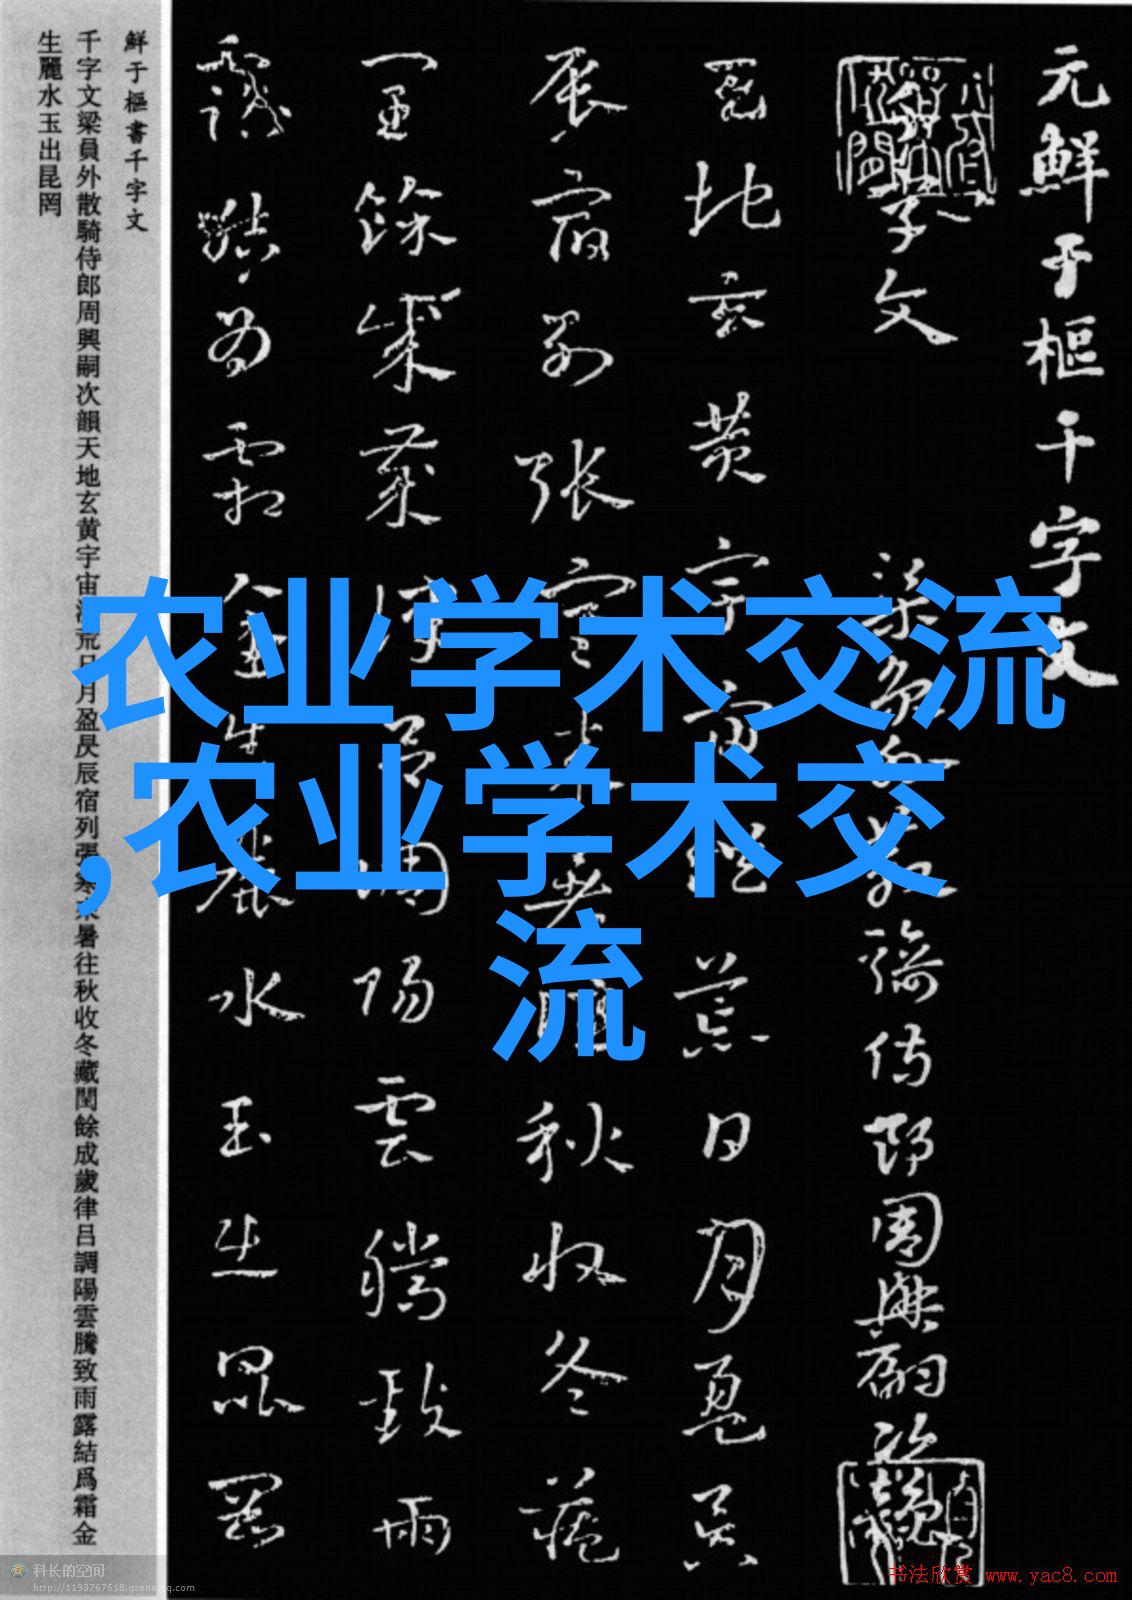 元鮮于樞千字文
千字文
梁員外散騎侍郎周興嗣次韻
天地玄黃宇宙洪荒日月盈昃
辰宿列張寒來暑往秋收冬藏
閏餘成歲律呂調陽雲騰致雨
露結為霜金生麗水玉出崑岡
鮮于樞書千字文
千字文梁員外散騎侍郎周興嗣次韻天地玄黄宇宙洪荒日月盈昃辰宿列張寒來暑往秋收冬藏閏餘成歲律吕調陽雲騰致雨露結爲霜金
生麗水玉出昆罔
农业学术交流
,农业学术交
流
科长的空间
http://1193767618.qzone.qq.com
书法欣赏 www.yac8.com